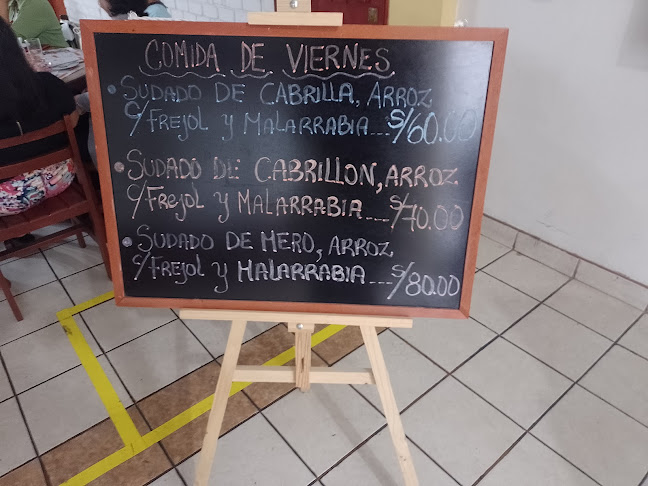 COMIDA DE VIERNES
SUDADO DE CABRILLA, ARROZ
C/FREJOL Y MALARRABIA...S/60.00
SUDADO DE CABRILLON, ARROZ
C/FREJOL Y MALARRABIA...S/70.00
SUDADO DE MERO, ARROZ
C/FREJOL Y MALARRABIA...S/80.00